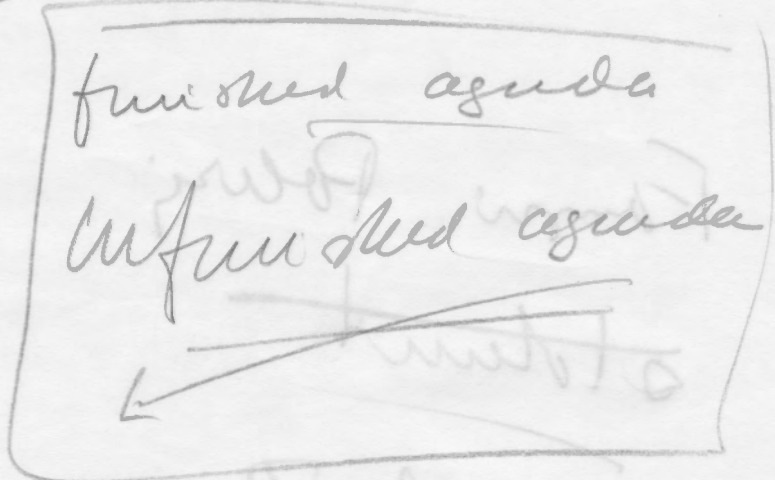 finished agenda
unfinished agenda